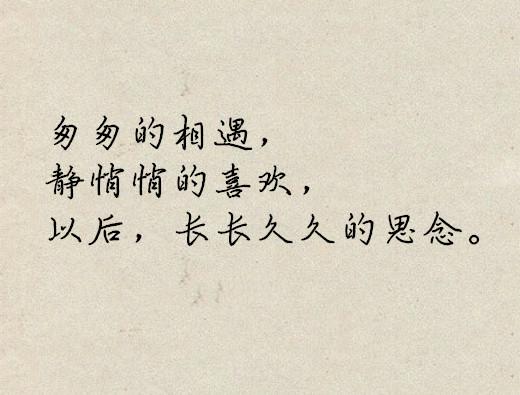 匆匆的相遇，
静悄悄的喜欢，
以后，长长久久的思念。